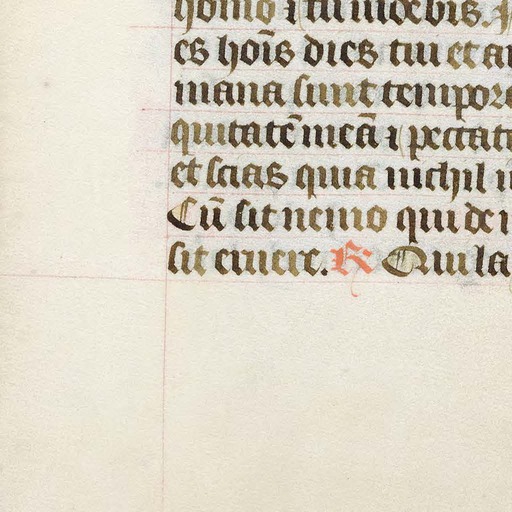 homo ⁊ tu uidebis. A
es hoīs dies tui et a
mana sunt tempor
quitatē meā ⁊ peccat
et scias quia nichil
Cū sit nemo qui de
sit eruere. R Qui la